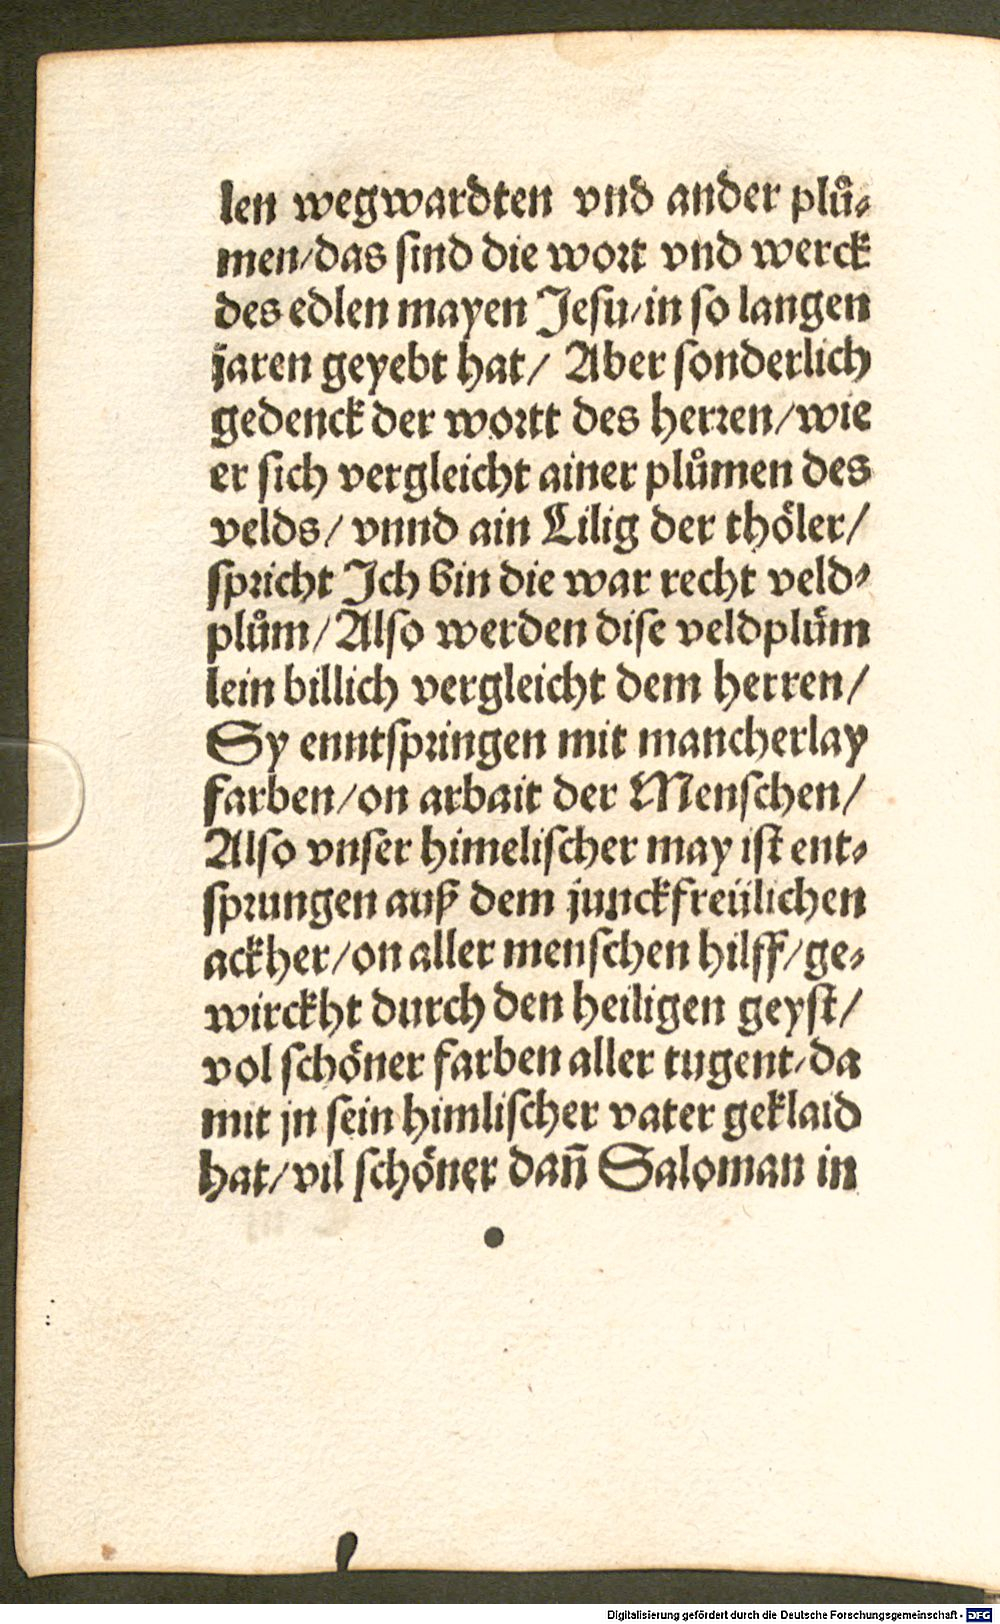 len wegwardten vnd ander pluͦ⸗
men/das sind die wort vnd werck
des edlen mayen Jesu/in so langen
jaren geyebt hat/ Aber sonderlich
gedenck der wortt des herren/wie
er sich vergleicht ainer pluͦmen des
velds/ vnnd ain Lilig der thoͤler/
spricht Jch bin die war recht veld⸗
pluͦm/Also werden dise veldpluͤm
lein billich vergleicht dem herren/
Sy enntspringen mit mancherlay
farben/on arbait der Menschen/
Also vnser himelischer may ist ent⸗
sprungen auß dem junckfreülichen
ackher/on aller menschen hilff/ge⸗
wirckht durch den heiligen geyst/
vol schoͤner farben aller tugent/da
mit jn sein himlischer vater geklaid
hat/vil schoͤner dañ Saloman in
Digitalisierung gefördert durch die Deutsche Forschungsgemeinschaft - DFG